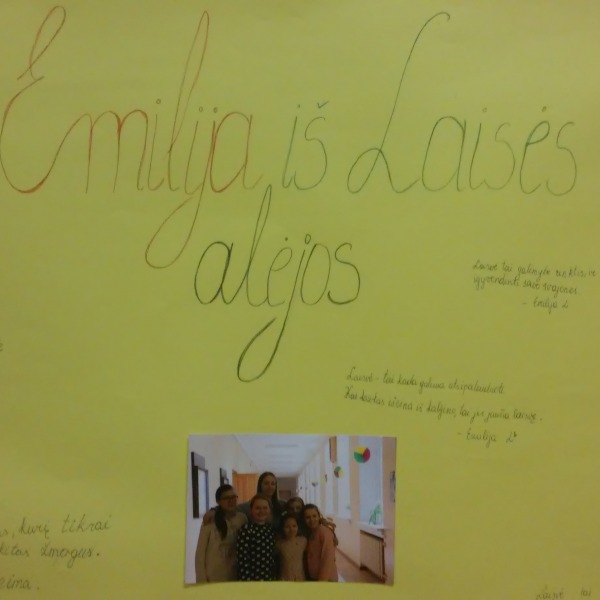 Emilija iš Laisės
alėjos
Laisvė tai galimybė siekti ir
įgyvendinti savo svajones.
- Emilija L
Laisvė - tai kada galima atsipalaiduoti.
Kai kažkas išeina iš kalėjimo, tai jis jaučia laisvę.
- Emilija L
kurię tikrai
kitas žmogus.
Laisvė tai